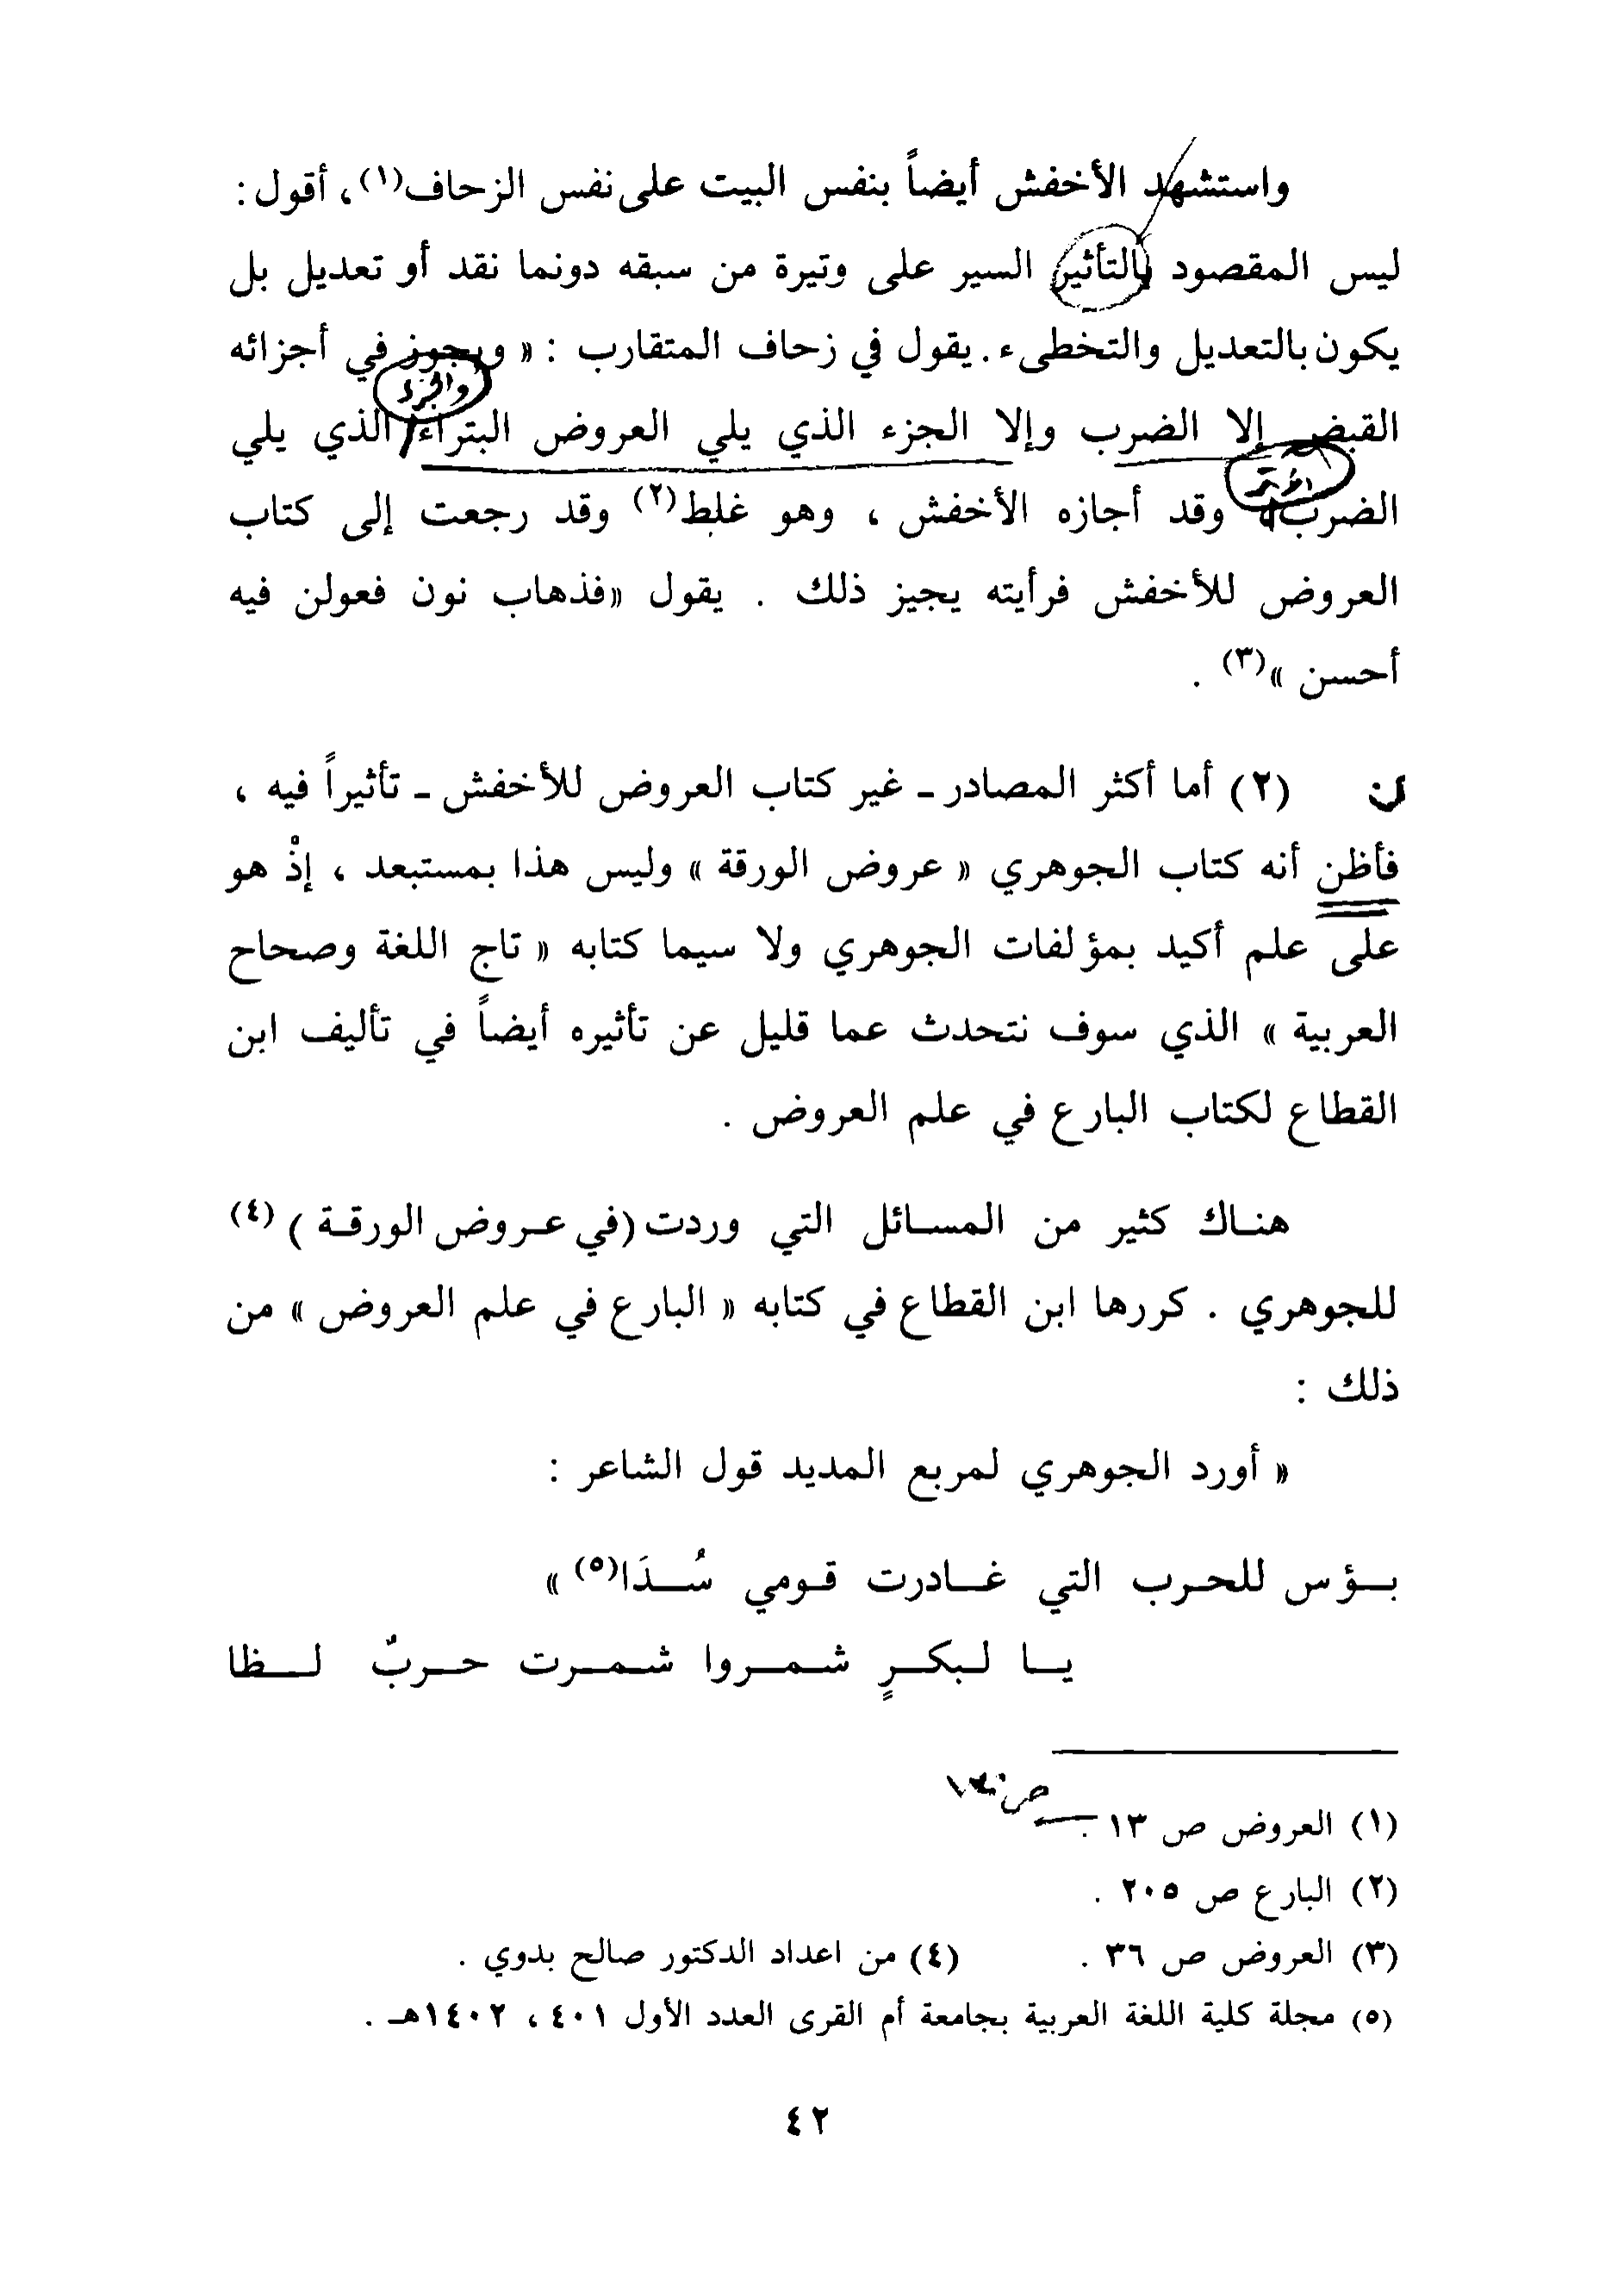 واستشهد الأخفش أيضاً بنفس البيت على نفس الزحاف(١)، أقول:
ليس المقصود بالتأثير السير على وتيرة من سبقه دونما نقد أو تعديل بل
يكون بالتعديل والتخطىء. يقول في زحاف المتقارب : « ويجوز في أجزائه
والجزء
القبض إلا الضرب وإلا الجزء الذي يلي العروض البتراء الذي يلي
الأبتر
الضرب» وقد أجازه الأخفش ، وهو غلط(٢) وقد رجعت إلى كتاب
العروض للأخفش فرأيته يجيز ذلك . يقول «فذهاب نون فعولن فيه
أحسن »(٣) .
(٢) أما أكثر المصادر ـ غير كتاب العروض للأخفش ـ تأثيراً فيه ،
فأظن أنه كتاب الجوهري « عروض الورقة » وليس هذا بمستبعد ، إذْ هو
على علم أكيد بمؤلفات الجوهري ولا سيما كتابه « تاج اللغة وصحاح
العربية » الذي سوف نتحدث عما قليل عن تأثيره أيضاً في تأليف ابن
القطاع لكتاب البارع في علم العروض .
هنـاك كثير من المسـائل التي وردت (في عـروض الورقـة ) (٤)
للجوهري . كررها ابن القطاع في كتابه « البارع في علم العروض » من
ذلك :
« أورد الجوهري لمربع المديد قول الشاعر :
بـؤس للحـرب التي غـادرت قـومي سُـدَا(٥) »
يـا لـبكـرٍ شمـروا شمـرت حـربٌ لـظا
(١) العروض ص ١٣ .
(٢) البارع ص ٢٠٥ .
(٣) العروض ص ٣٦ . (٤) من اعداد الدكتور صالح بدوي .
(٥) مجلة كلية اللغة العربية بجامعة أم القرى العدد الأول ٤٠١ ، ١٤٠٢هـ .
٤٢